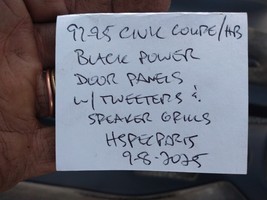 92-95 CIVIC COUPE/HB
BLACK POWER
DOOR PANELS
W/TWEETERS &
SPEAKER GRILLS
HSPECPARTS
9-8-2025